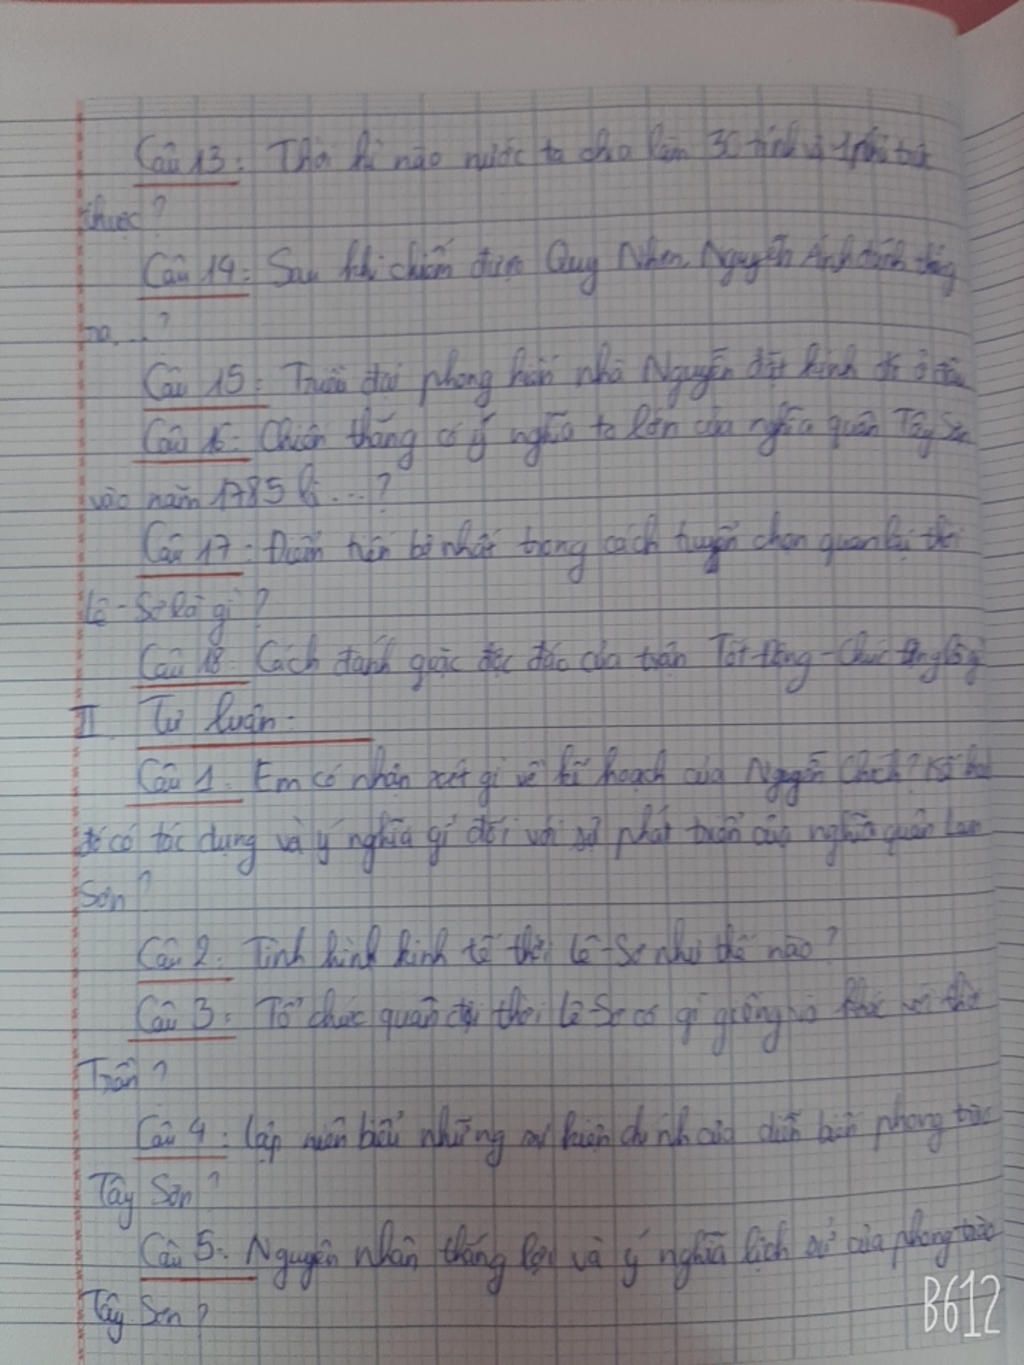 Câu 13: Thời kì nào nước ta chia làm 30 tỉnh và 1 phủ trực
thuộc?
Câu 14: Sau khi chiếm được Quy Nhơn, Nguyễn Ánh đánh thẳng
ra...?
Câu 15: Triều đại phong kiến nhà Nguyễn đặt kinh đô ở đâu
Câu 16: Chiến thắng có ý nghĩa to lớn của nghĩa quân Tây Sơn
vào năm 1785 là ...?
Câu 17: Điểm tiến bộ nhất trong cách tuyển chọn quan lại thời
Lê-Sơ là gì?
Câu 18: Cách đánh giặc độc đáo của trận Tốt Động-Chúc Động là gì
II. Tự luận.
Câu 1: Em có nhận xét gì về kế hoạch của Nguyễn Chích? Kế hoạch
đó có tác dụng và ý nghĩa gì đối với sự phát triển của nghĩa quân Lam
Sơn?
Câu 2: Tình hình kinh tế thời Lê-Sơ như thế nào?
Câu 3: Tổ chức quân đội thời Lê-Sơ có gì giống và khác với thời
Trần?
Câu 4: Lập niên biểu những sự kiện chính của diễn biến phong trào
Tây Sơn?
Câu 5: Nguyên nhân thắng lợi và ý nghĩa lịch sử của phong trào
Tây Sơn?
B612